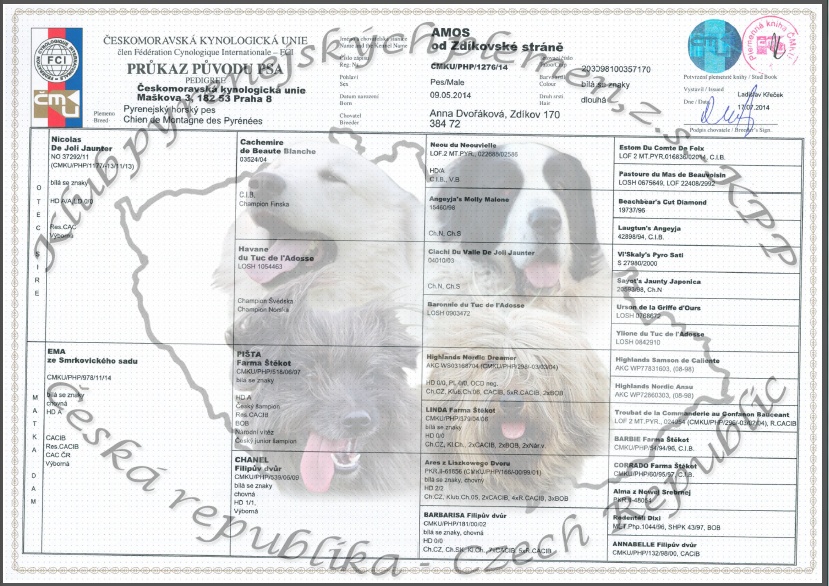 ČESKOMORAVSKÁ KYNOLOGICKÁ UNIE
člen Fédération Cynologique Internationale – FCI
PRŮKAZ PŮVODU PSA
PEDIGREE
Českomoravská kynologická unie
Maškova 3, 182 53 Praha 8
Plemeno
Breed
Pyrenejský horský pes
Chien de Montagne des Pyrénées
FCI
ČMKU
Name and the Kennel Name
AMOS
od Zdíkovské stráně
ČMKU/PHP/1276/14
203098100357170
Pohlaví
Sex
Pes/Male
bílá se znaky
Datum narození
Born
09.05.2014
dlouhá
Chovatel
Breeder
Anna Dvořáková, Zdíkov 170
384 72
Plemenná kniha ČMKU
Potvrzení plemenné knihy / Stud Book
Vystavil / Issued
Ladislav Křeček
Dne / Date
17.07.2014
Podpis chovatele / Breeder's Sign.
Klub pyrenejských plemen, z.s. - KPP
Česká republika - Czech Republic
OTEC SIRE
Nicolas
De Joli Jaunter
NO 37292/11
(CMKU/PHP/1177/-13/11/13)
bílá se znaky
HD A/A,ED 0/0
Res.CAC
Výborná
MATKA DAM
EMA
ze Smrkovického sadu
CMKU/PHP/978/11/14
bílá se znaky
chovná
HD A
CACIB
Res.CACIB
CAC ČR
Výborná
Cachemire
de Beaute Blanche
03524/04
C.I.B.
Champion Finska
Havane
du Tuc de l'Adosse
LOSH 1054463
Champion Švédska
Champion Norska
PIŠTA
Farma Štěkot
CMKU/PHP/518/06/07
bílá se znaky
HD A
Český šampion
Res.CACIB
BOB
Národní vítěz
Český junior šampion
CHANEL
Filipův dvůr
CMKU/PHP/639/06/09
bílá se znaky
chovná
HD 1/1,
Výborná
Neou du Neouvielle
LOF 2 MT.PYR. 022688/02586
HD/A
C.I.B., V.B.
Angeyja's Molly Malone
15460/98
Ch.N, Ch.S
Ciachi Du Valle De Joli Jaunter
04010/03
Ch.N, Ch.S
Baronnie du Tuc de l'Adosse
LOSH 0903472
Highlands Nordic Dreamer
AKC WS03168704 (CMKU/PHP/298/-03/03/04)
HD 0/0, PL 0/0, OCD neg.
Ch.CZ, Klub.Ch.06, CACIB, 5xR.CACIB, 2xBOB
LINDA Farma Štěkot
CMKU/PHP/379/04/06
bílá se znaky
HD 0/0
Ch.CZ, Kl.Ch., 2xCACIB, 2xBOB, 2xNár.v.
Ares z Liszkowego Dworu
PKR.II-61656 (CMKU/PHP/166/-00/99/01)
bílá se znaky
HD 2/2
Ch.CZ, Klub.Ch.05, 2xCACIB, 4xR.CACIB, 3xBOB
BARBARISA Filipův dvůr
CMKU/PHP/181/00/02
bílá se znaky, chovná
HD 0/0
Ch.CZ, Ch.SK, Kl.Ch., 7xCACIB, 5xR.CACIB
Estom Du Comte De Foix
LOF 2 MT.PYR.016836/02014, C.I.B.
Pastoure du Mas de Beauvoisin
LOSH 0675649, LOF 22408/2992
Beachbear's Cut Diamond
19737/96
Laugtun's Angeyja
42898/94, C.I.B.
Vi'Skaly's Pyro Sati
S 27980/2000
Sayot's Jaunty Japonica
20593/98, Ch.N
Urson de la Griffe d'Ours
LOSH 0768672
Ylione du Tuc de l'Adosse
LOSH 0842910
Highlands Samson de Calionte
AKC WP77831603, (08-98)
Highlands Nordic Ansu
AKC WP72860303, (08-98)
Troubat de la Commanderie au Gonfanon Bauceant
BARBIE Farma Štěkot
CMKU/PHP/54/94/96, C.I.B.
CORRADO Farma Štěkot
CMKU/PHP/60/95/97, C.I.B.
Alma z Nowej Srebrnej
PKR.II-48054
Redentáti Dixi
MET.Ptp.1044/96, SHPK 43/97, BOB
ANNABELLE Filipův dvůr
CMKU/PHP/132/98/00, CACIB